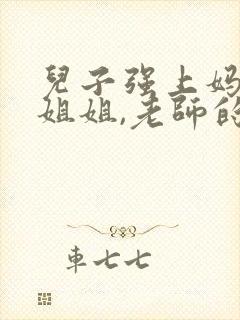 兒子强上妈
姐姐,老師的
車七七